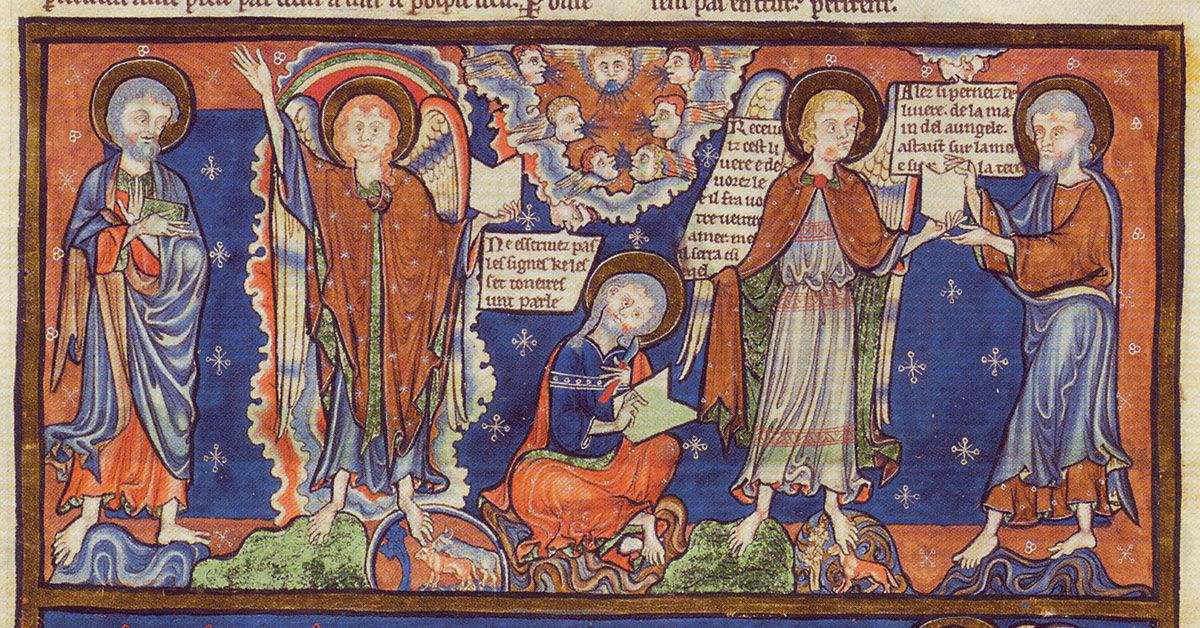 Ne escriuez pas
les signes ke les
set toneires
unt parle
Receuu
iz cest li
uere e de
uorez le
e il fra uo
tre uentre
amer. me
il serra
mel
Alez si perneiz le
liuere. de la ma
in del aungele.
astaut sur la me
e sur la tere